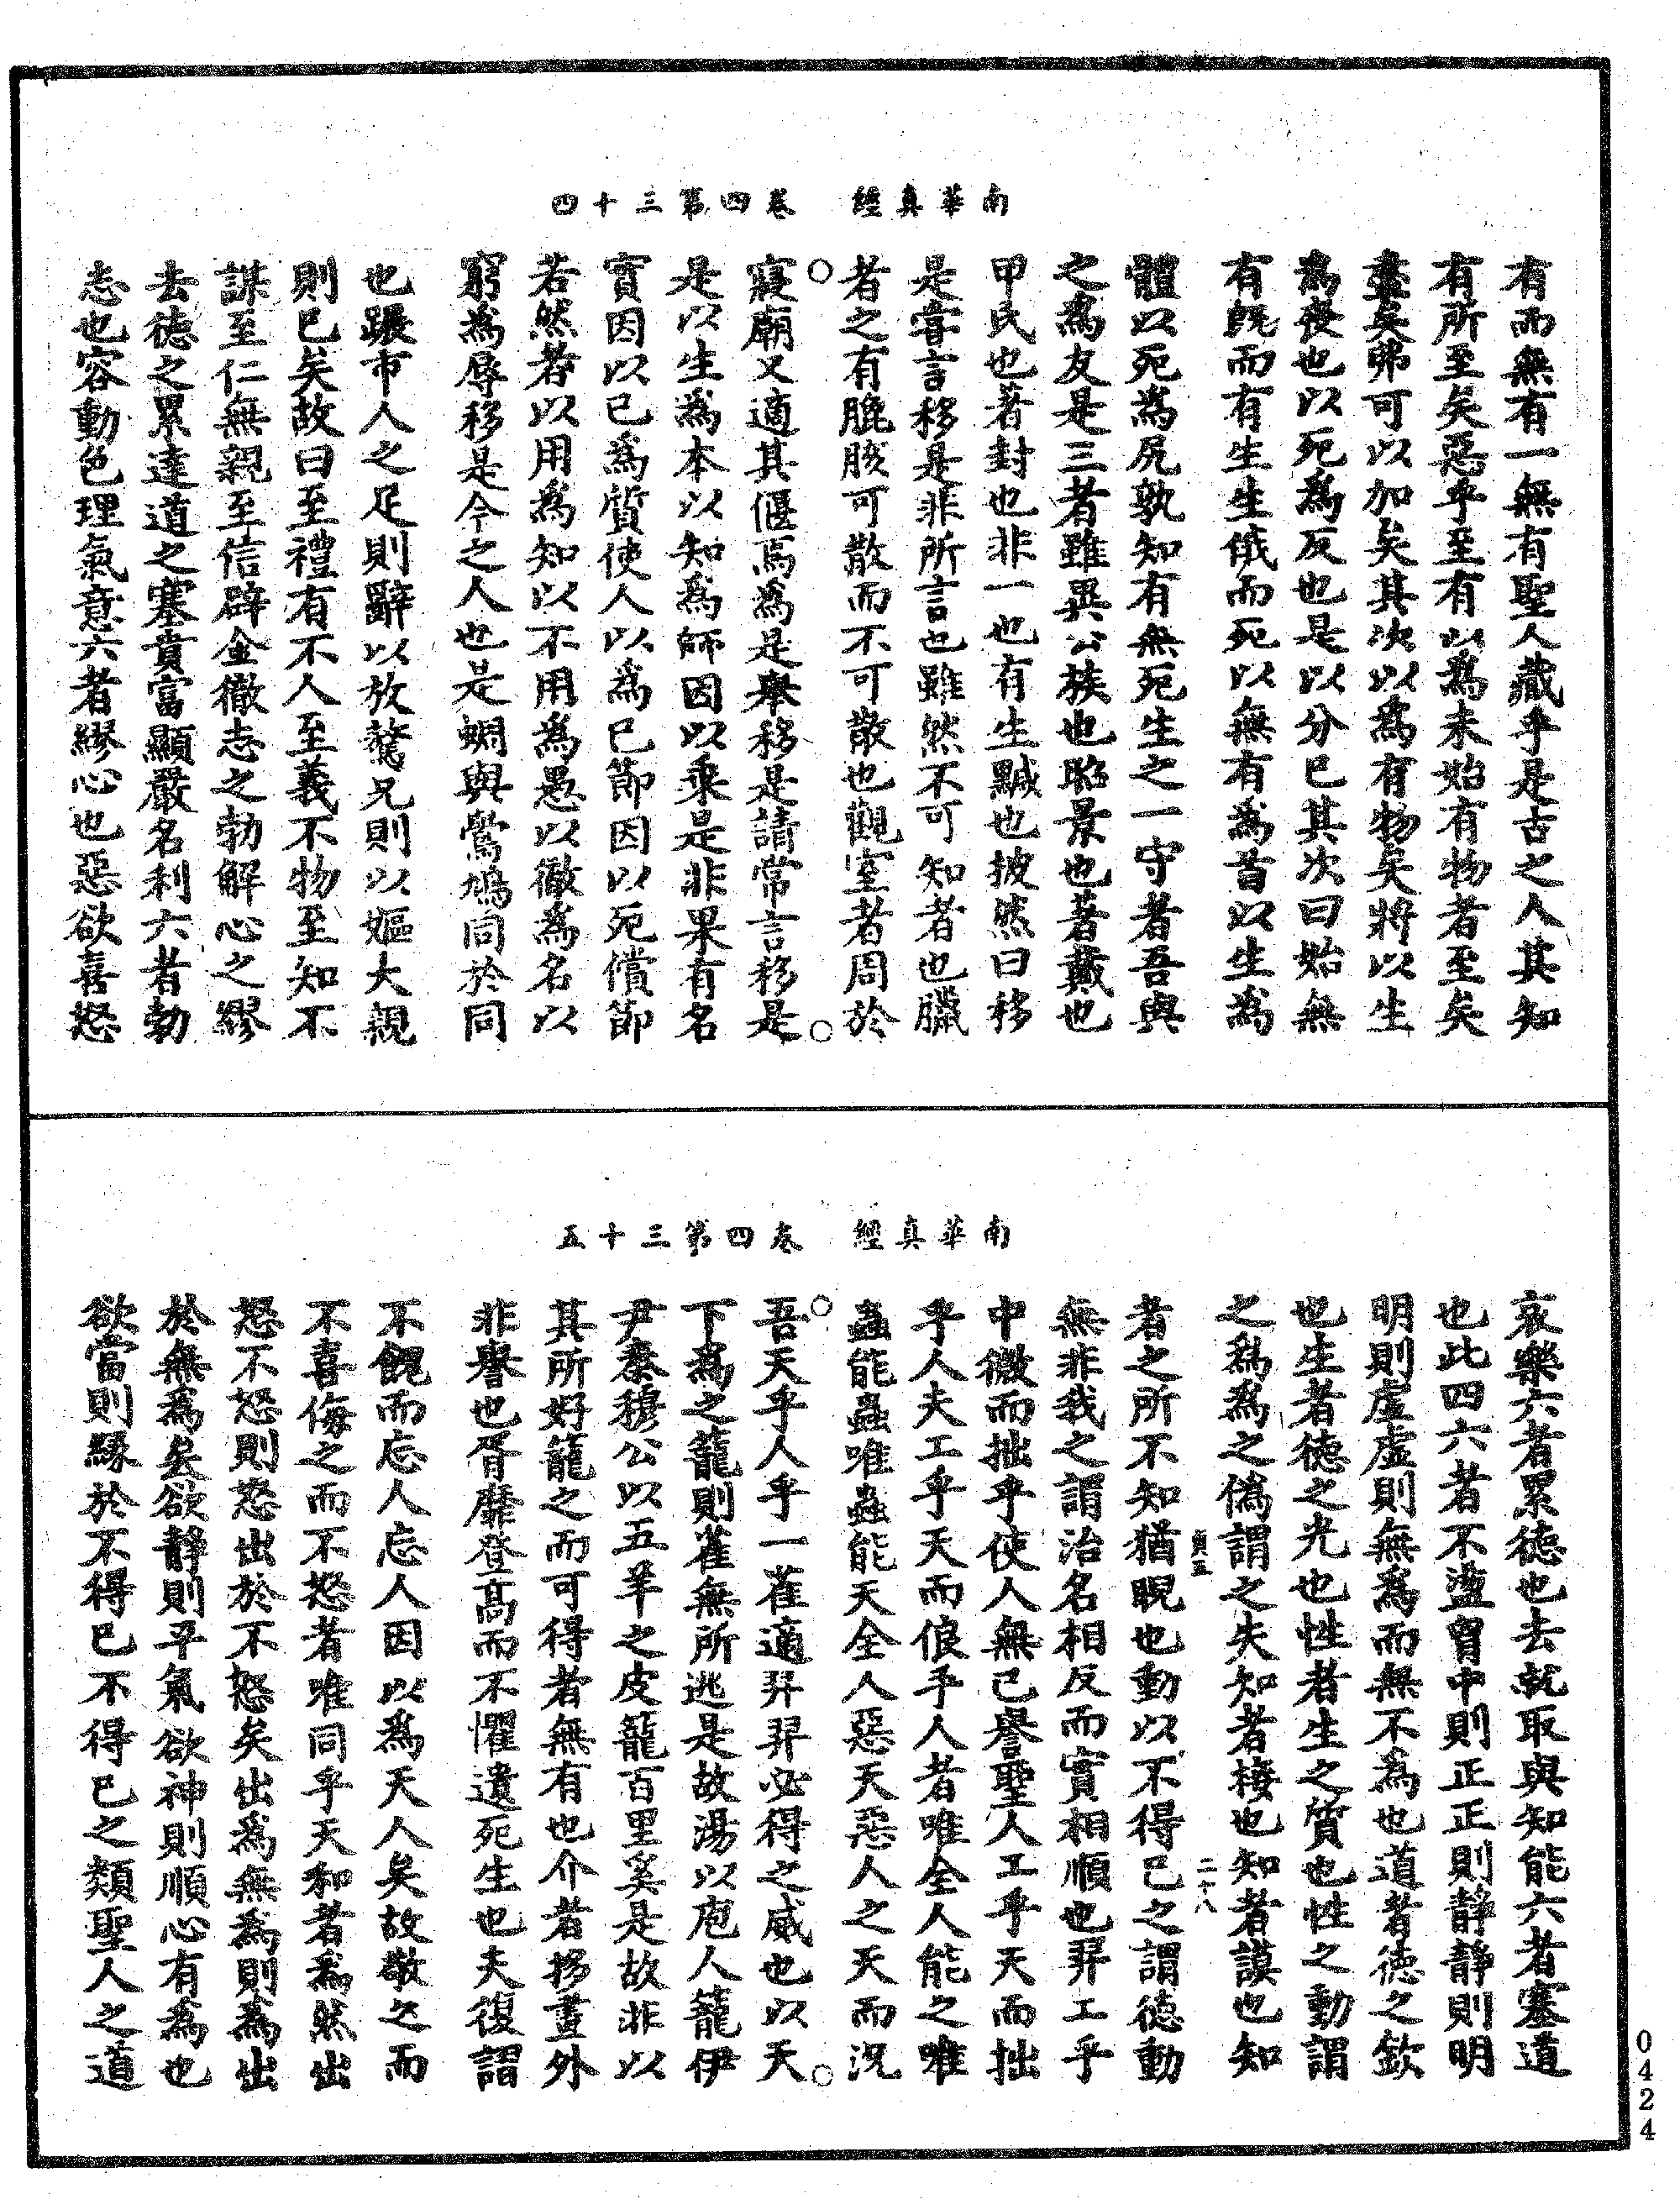 南華真經 卷四第三十四
有而無有一無有聖人藏乎是古之人其知
有所至矣惡乎至有以為未始有物者至矣
盡矣弗可以加矣其次以為有物矣將以生
為喪也以死為反也是以分已其次曰始無
有既而有生生俄而死以無有為首以生為
體以死為尻孰知有無死生之一守者吾與
之為友是三者雖異公族也昭景也著戴也
甲氏也著封也非一也有生黬也披然曰移
是嘗言移是非所言也雖然不可知者也臘
者之有膍胲可散而不可散也觀室者周於
寢廟又適其偃焉為是舉移是請常言移是
是以生為本以知為師因以乘是非果有名
實因以己為質使人以為己節因以死償節
若然者以用為知以不用為愚以徹為名以
窮為辱移是今之人也是蜩與鷽鳩同於同
也蹍市人之足則辭以放驁兄則以嫗大親
則已矣故曰至禮有不人至義不物至知不
謀至仁無親至信辟金徹志之勃解心之繆
去德之累達道之塞貴富顯嚴名利六者勃
志也容動色理氣意六者繆心也惡欲喜怒
南華真經 卷四第三十五
哀樂六者累德也去就取與知能六者塞道
也此四六者不盪胷中則正正則靜靜則明
明則虛虛則無為而無不為也道者德之欽
也生者德之光也性者生之質也性之動謂
之為為之偽謂之失知者接也知者謨也知
二十八
者之所不知猶睨也動以不得已之謂德動
無非我之謂治名相反而實相順也羿工乎
中微而拙乎使人無己譽聖人工乎天而拙
乎人夫工乎天而俍乎人者唯全人能之唯
蟲能蟲唯蟲能天全人惡天惡人之天而況
吾天乎人乎一雀適羿羿必得之威也以天
下為之籠則雀無所逃是故湯以庖人籠伊
尹秦穆公以五羊之皮籠百里奚是故非以
其所好籠之而可得者無有也介者拸畫外
非譽也胥靡登高而不懼遺死生也夫復謵
不餽而忘人忘人因以為天人矣故敬之而
不喜侮之而不怒者唯同乎天和者為然出
怒不怒則怒出於不怒矣出為無為則為出
於無為矣欲靜則平氣欲神則順心有為也
欲當則緣於不得已不得已之類聖人之道
0424